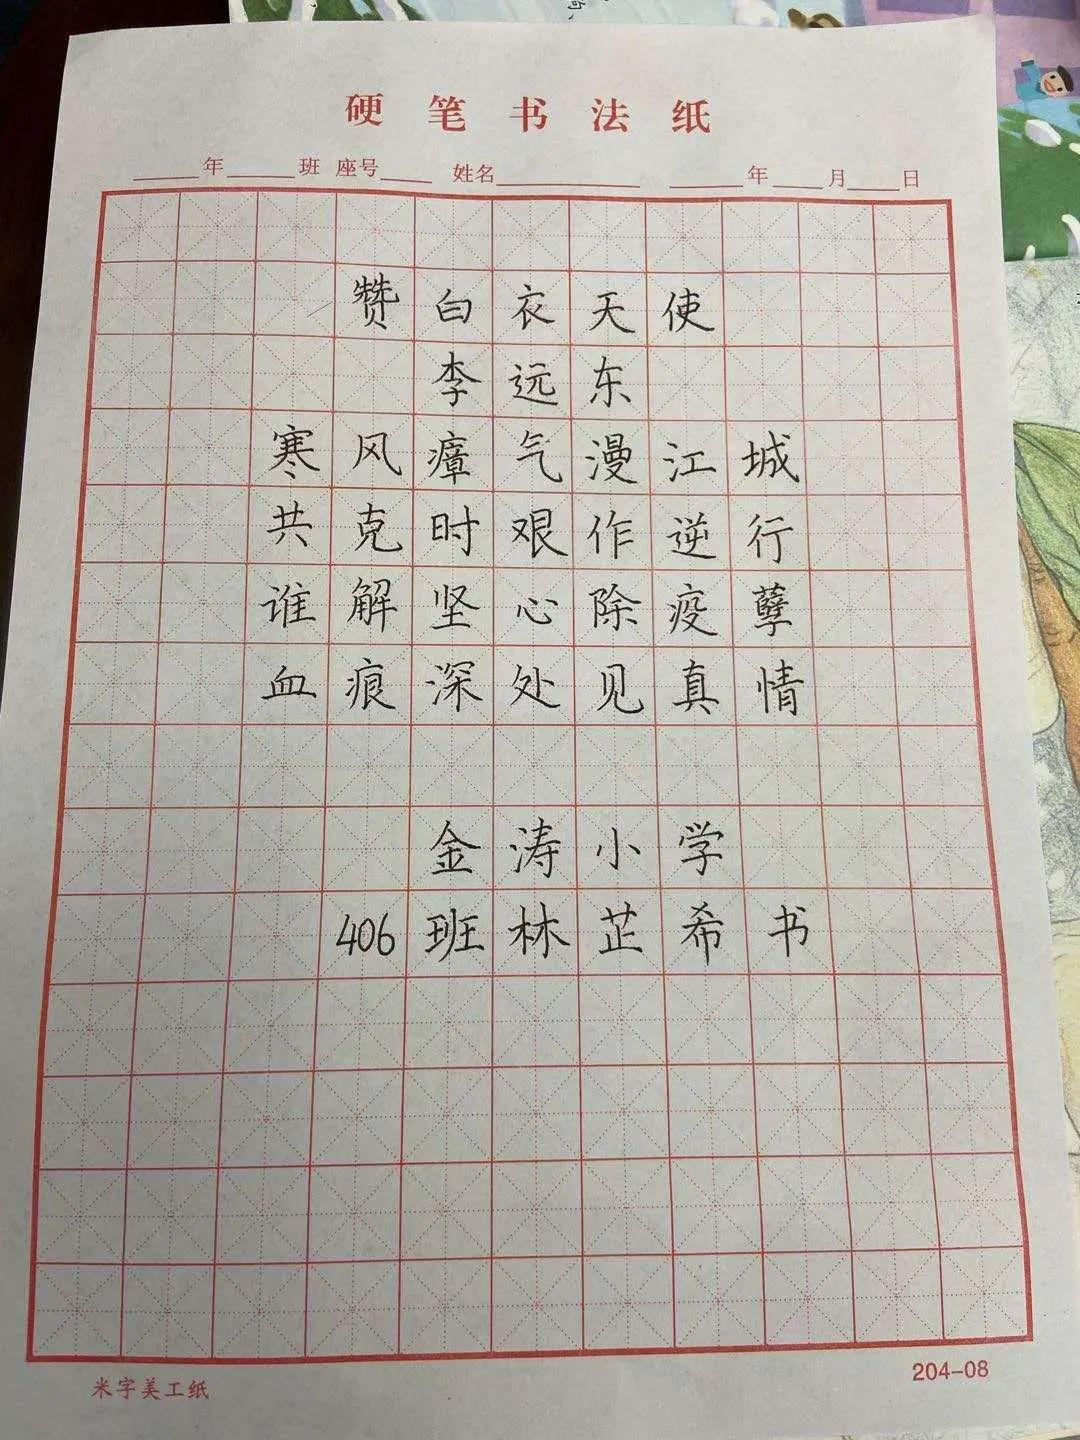 硬笔书法纸
年 班 座号 姓名 年 月 日
赞白衣天使
李远东
寒风瘴气漫江城
共克时艰作逆行
谁解坚心除疫孽
血痕深处见真情
金涛小学
406班林芷希书
米字美工纸
204-08